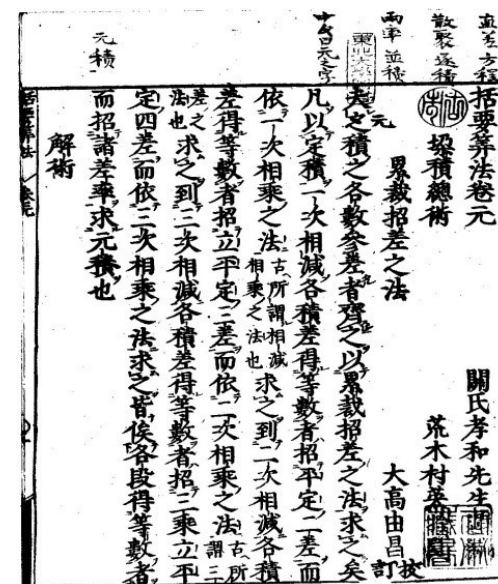 括要算法卷元
關氏孝和先生
垛積總術
荒木村英
大高由昌校訂
累裁招差之法
夫元積之各數參差者齊之以累裁招差之法求之矣
凡以定積一次相減各積差得等數者招平定二差而
依一次相乘之法古所謂相減相乘之法也求之到二次相減各積
差得等數者招立平定三差而依二次相乘之法古所謂三
差之法也求之到三次相減各積差得等數者招三乘立平
定四差而依三次相乘之法求之皆俟各段得等數者
而招諸差率求元積也
解術
元積